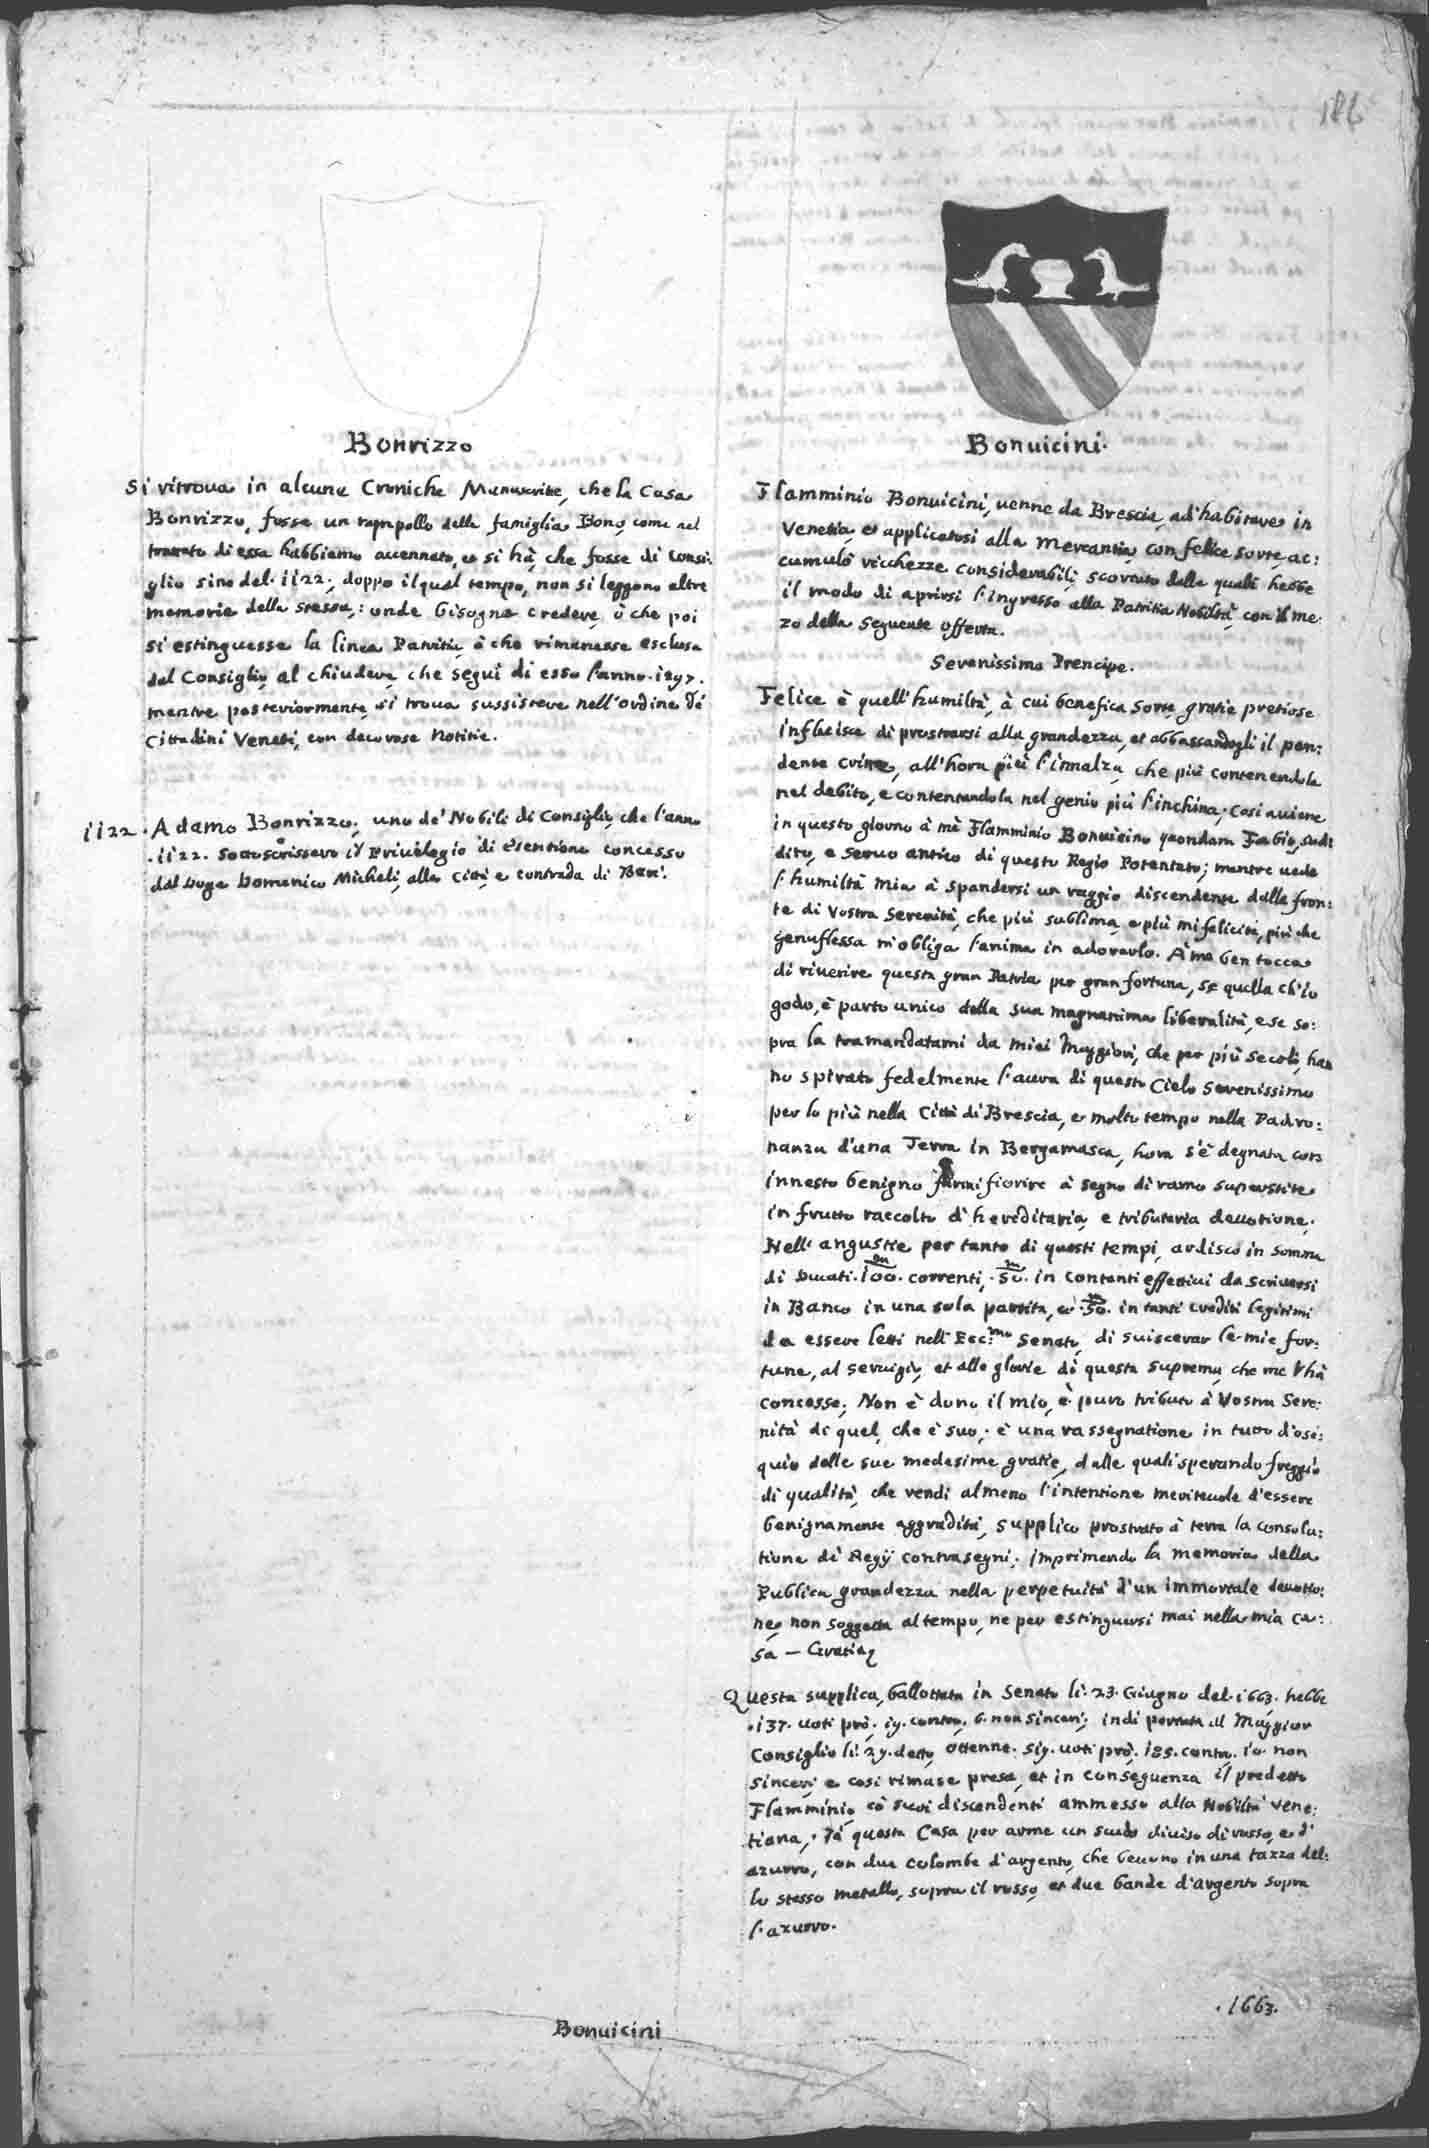 186
Bonrizzo
Si ritroua in alcune Croniche Manuscritte, che la Casa
Bonrizzo, fosse un rampollo della famiglia Bono, come nel
trattato di essa habbiamo accennato, et si hà, che fosse di Consi:
glio sino del .1122. doppo il qual tempo, non si leggono altre
memorie della stessa; onde bisogna credere, ò che poi
si estinguesse la linea Patritia, ò che rimanesse esclusa
dal Consiglio, al chiudere, che seguì di esso l'anno .1297.
mentre posteriormente, si trova sussistere nell'ordine de'
Cittadini Veneti, con decorose notitie.
1122. Adamo Bonrizzo, uno de' Nobili di Consiglio, che l'anno
.1122. sottoscrissero il Priuilegio di esentione concesso
dal Doge Domenico Micheli, alla città, e contrada di Bari.
Bonuicini
Bonuicini.
Flamminio Bonuicini, uenne da Brescia, ad habitare in
Venetia, et applicatosi alla mercantia, con felice sorte, ac:
cumulò ricchezze considerabili, scortato dalle quali hebbe
il modo di aprirsi l'ingresso alla Patritia Nobiltà, con il me:
zo della seguente offerta.
Serenissimo Prencipe.
Felice è quell'humiltà, à cui benefica sorte, gratie pretiose
influisce di prostrarsi alla grandezza, et abbassandogli il pen:
dente crine, all'hora più l'innalza, che più contenendola
nel debito, e contentandola nel genio più l'inchina. Così auiene
in questo giorno à mè Flamminio Bonuicino quondam Fabio, sudi
dito, e seruo antico di questo Regio Potentato; mentre uede
l'humiltà mia à spandersi un raggio discendente dalla fron:
te di Vostra Serenità, che più sublima, e più mi felicita, più che
genuflessa m'obliga l'anima in adorarlo. À me ben tocca
di riuerire questa gran Patria per gran fortuna, se quella ch'io
godo, è parto unico della sua magnanima liberalità, e se so:
pra la tramandatami da miei Maggiori, che per più secoli, han
no spirato fedelmente l'aura di questo Cielo Serenissimo
per lo più nella Città di Brescia, e molto tempo nella Padro:
nanza d'una Terra in Bergamasca, hora s'è degnata con
innesto benigno farmi fiorire à segno di ramo superstite
in frutto raccolto di hereditaria, e tributaria deuotione.
Nell'angustie per tanto di questi tempi, ardisco in somma
di Ducati .100.m correnti, .50.m in contanti effettiui da scriuersi
in Banco in una sola partita, et .50.m in tanti crediti legitimi
da esser letti nell'Ecc.mo Senato, di suiscerar le mie for:
tune, al seruigio, et alle glorie di questa suprema, che me l'hà
concesse. Non è dono il mio, è puro tributo à Vostra Sere:
nità di quel, che è suo; è una rassegnatione in tutto d'ose:
quio delle sue medesime gratie, dalle quali sperando freggio
di qualità, che rendi almeno l'intentione meriteuole d'essere
benignamente aggradita, supplico prostrato à terra la consola:
tione di Regij contrasegni, imprimendo la memoria della
Publica grandezza nella perpetuità d'un immortale deuotio:
ne, non soggetta al tempo, ne per estinguersi mai nella mia ca:
sa — Gratia
Questa supplica, ballottata in Senato li .23. Giugno del .1663. hebbe
.137. uoti prò, .19. contro, 6. non sinceri; indi portata al Maggior
Consiglio li .29. detto, ottenne .519. uoti prò, 185. contro, 10. non
sinceri e così rimase presa, et in conseguenza il predetto
Flamminio, cò suoi discendenti ammesso alla Nobiltà Vene:
tiana. Fà questa Casa per arme un scudo diuiso di rosso, e d'
azurro, con due colombe d'argento, che beuono in una tazza del:
lo stesso metallo, sopra il rosso, et due bande d'argento sopra
l'azurro.
.1663.